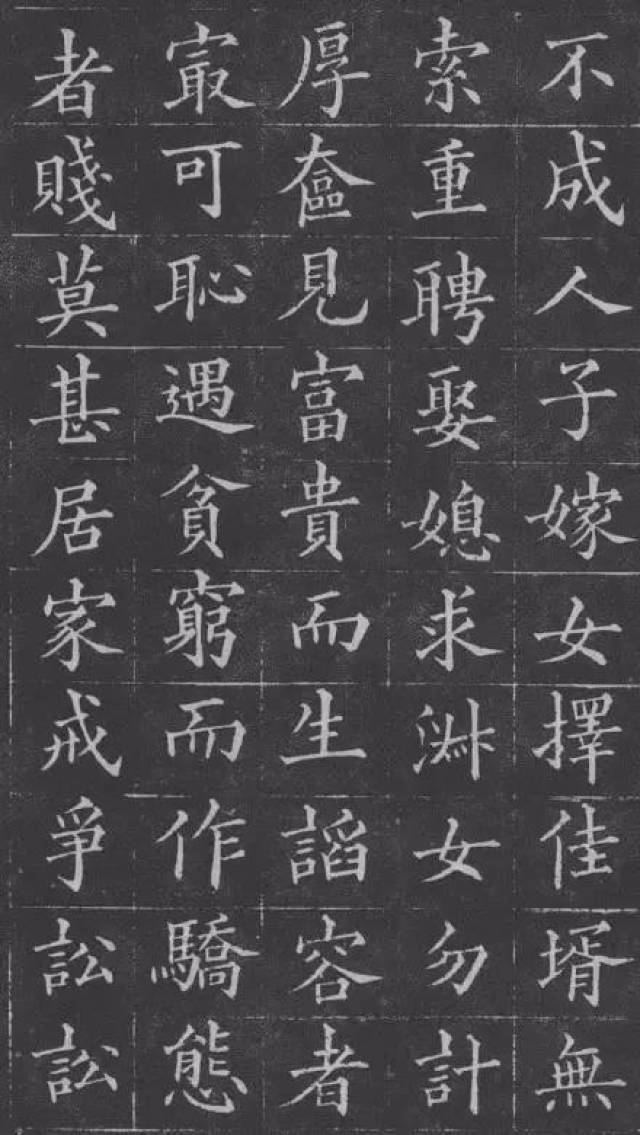 不成人子嫁女擇佳壻無
索重聘娶媳求淑女勿計
厚奩見富貴而生謟容者
㝡可恥遇貧窮而作驕態
者賤莫甚居家戒爭訟訟